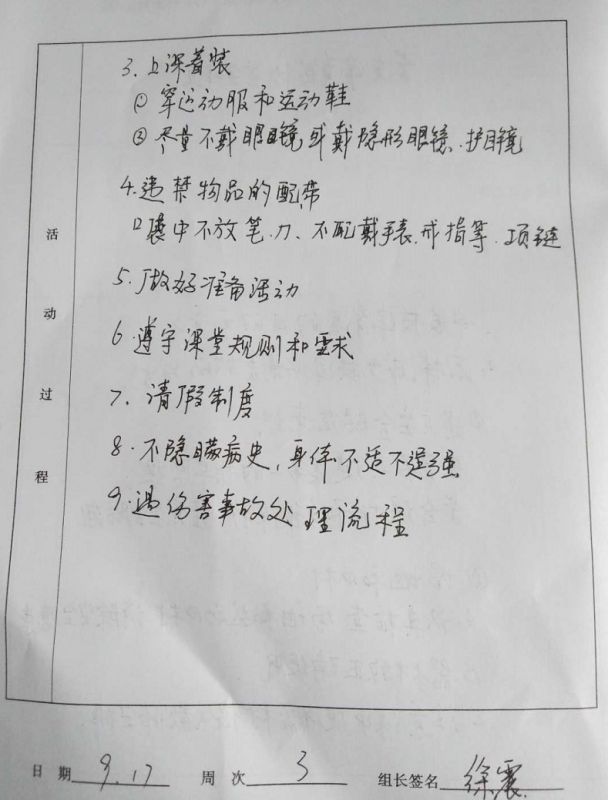 3. 上课着装
① 穿运动服和运动鞋
② 尽量不戴眼镜或戴隐形眼镜、护目镜
4. 违禁物品的配带
中不放笔、刀、不配戴手表、戒指等、项链
5. 做好准备活动
6. 遵守课堂规则和要求
7. 请假制度
8. 不隐瞒病史，身体不适不逞强
9. 遇伤害事故处理流程
活动过程
日期 9.17 周次 3 组长签名 徐震